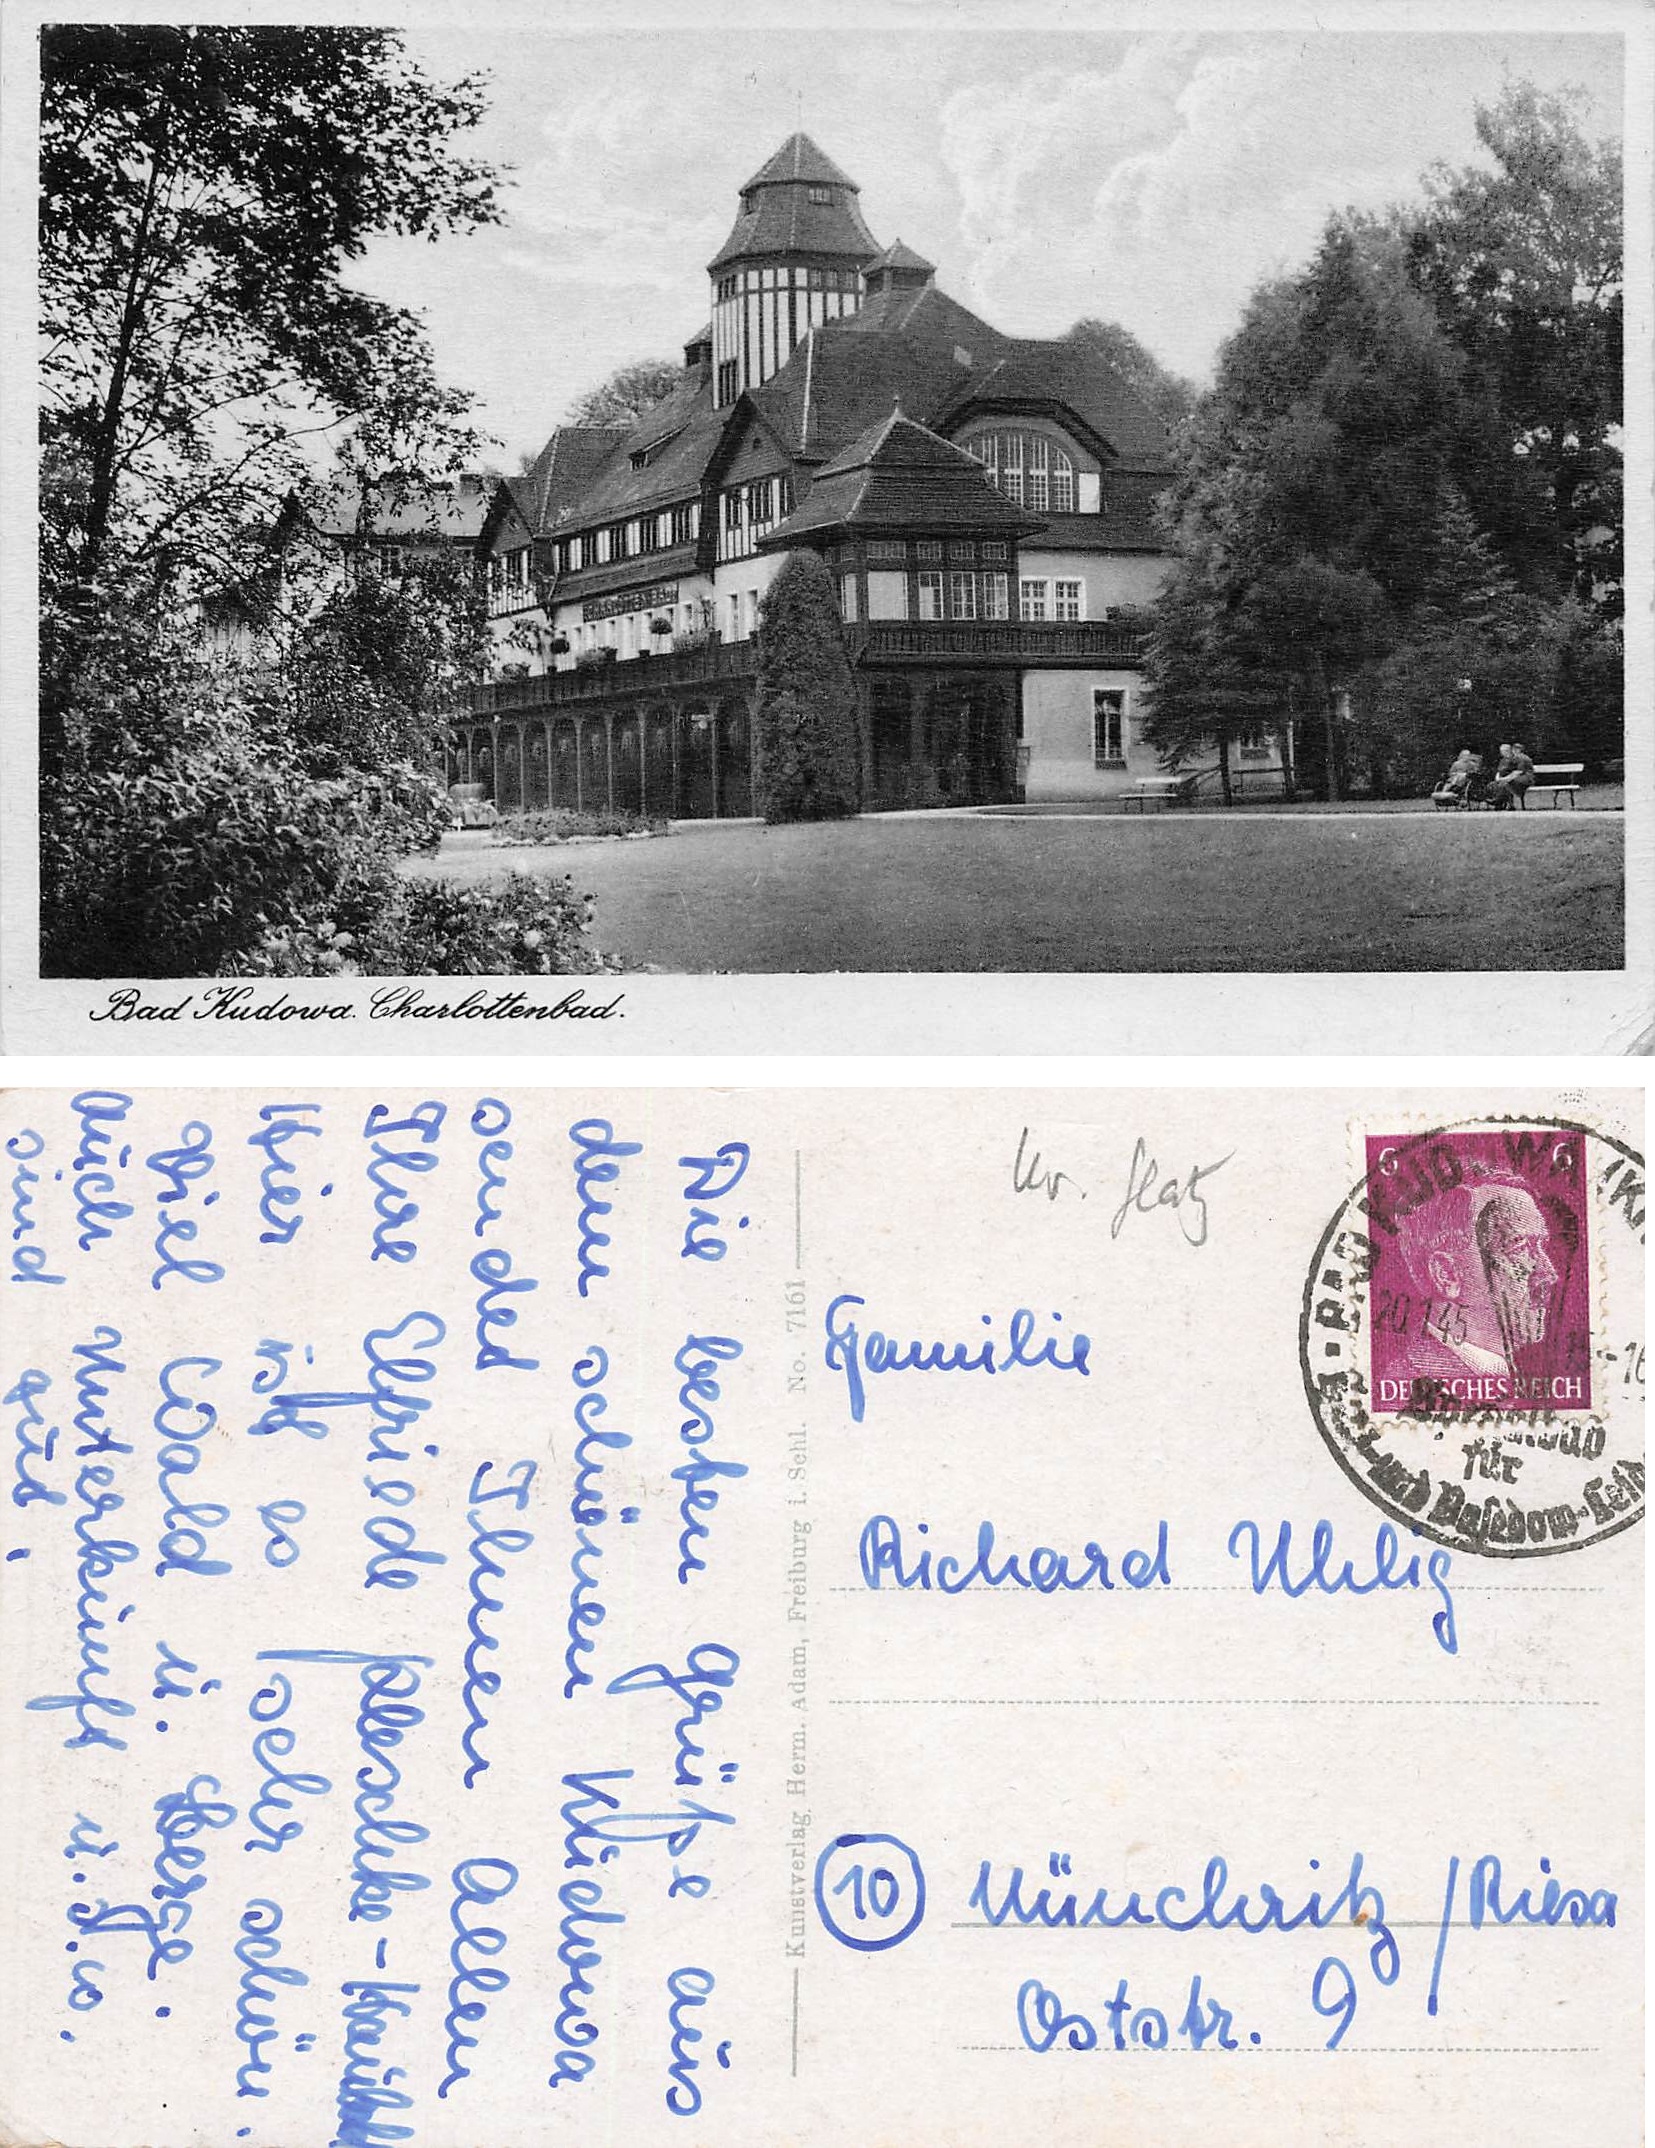 CHARLOTTENBAD
Bad Kudowa. Charlottenbad.
Die besten Grüße aus
dem schönen Kudowa
sendet Ihnen Allen
Ihre Elfriede
Hier ist es sehr schön.
Viel Wald u. Berge.
Auch Unterkunft u.
sind gut.
Kunstverlag Herm. Adam, Freiburg i. Schl. No. 7161
Kr. Glatz
6 6
DEUTSCHES REICH
BAD KUDOWA
20.1.45
-16
für
und Basedow-Leid
Familie
Richard Uhlig
10 Nünchritz / Riesa
Oststr. 9